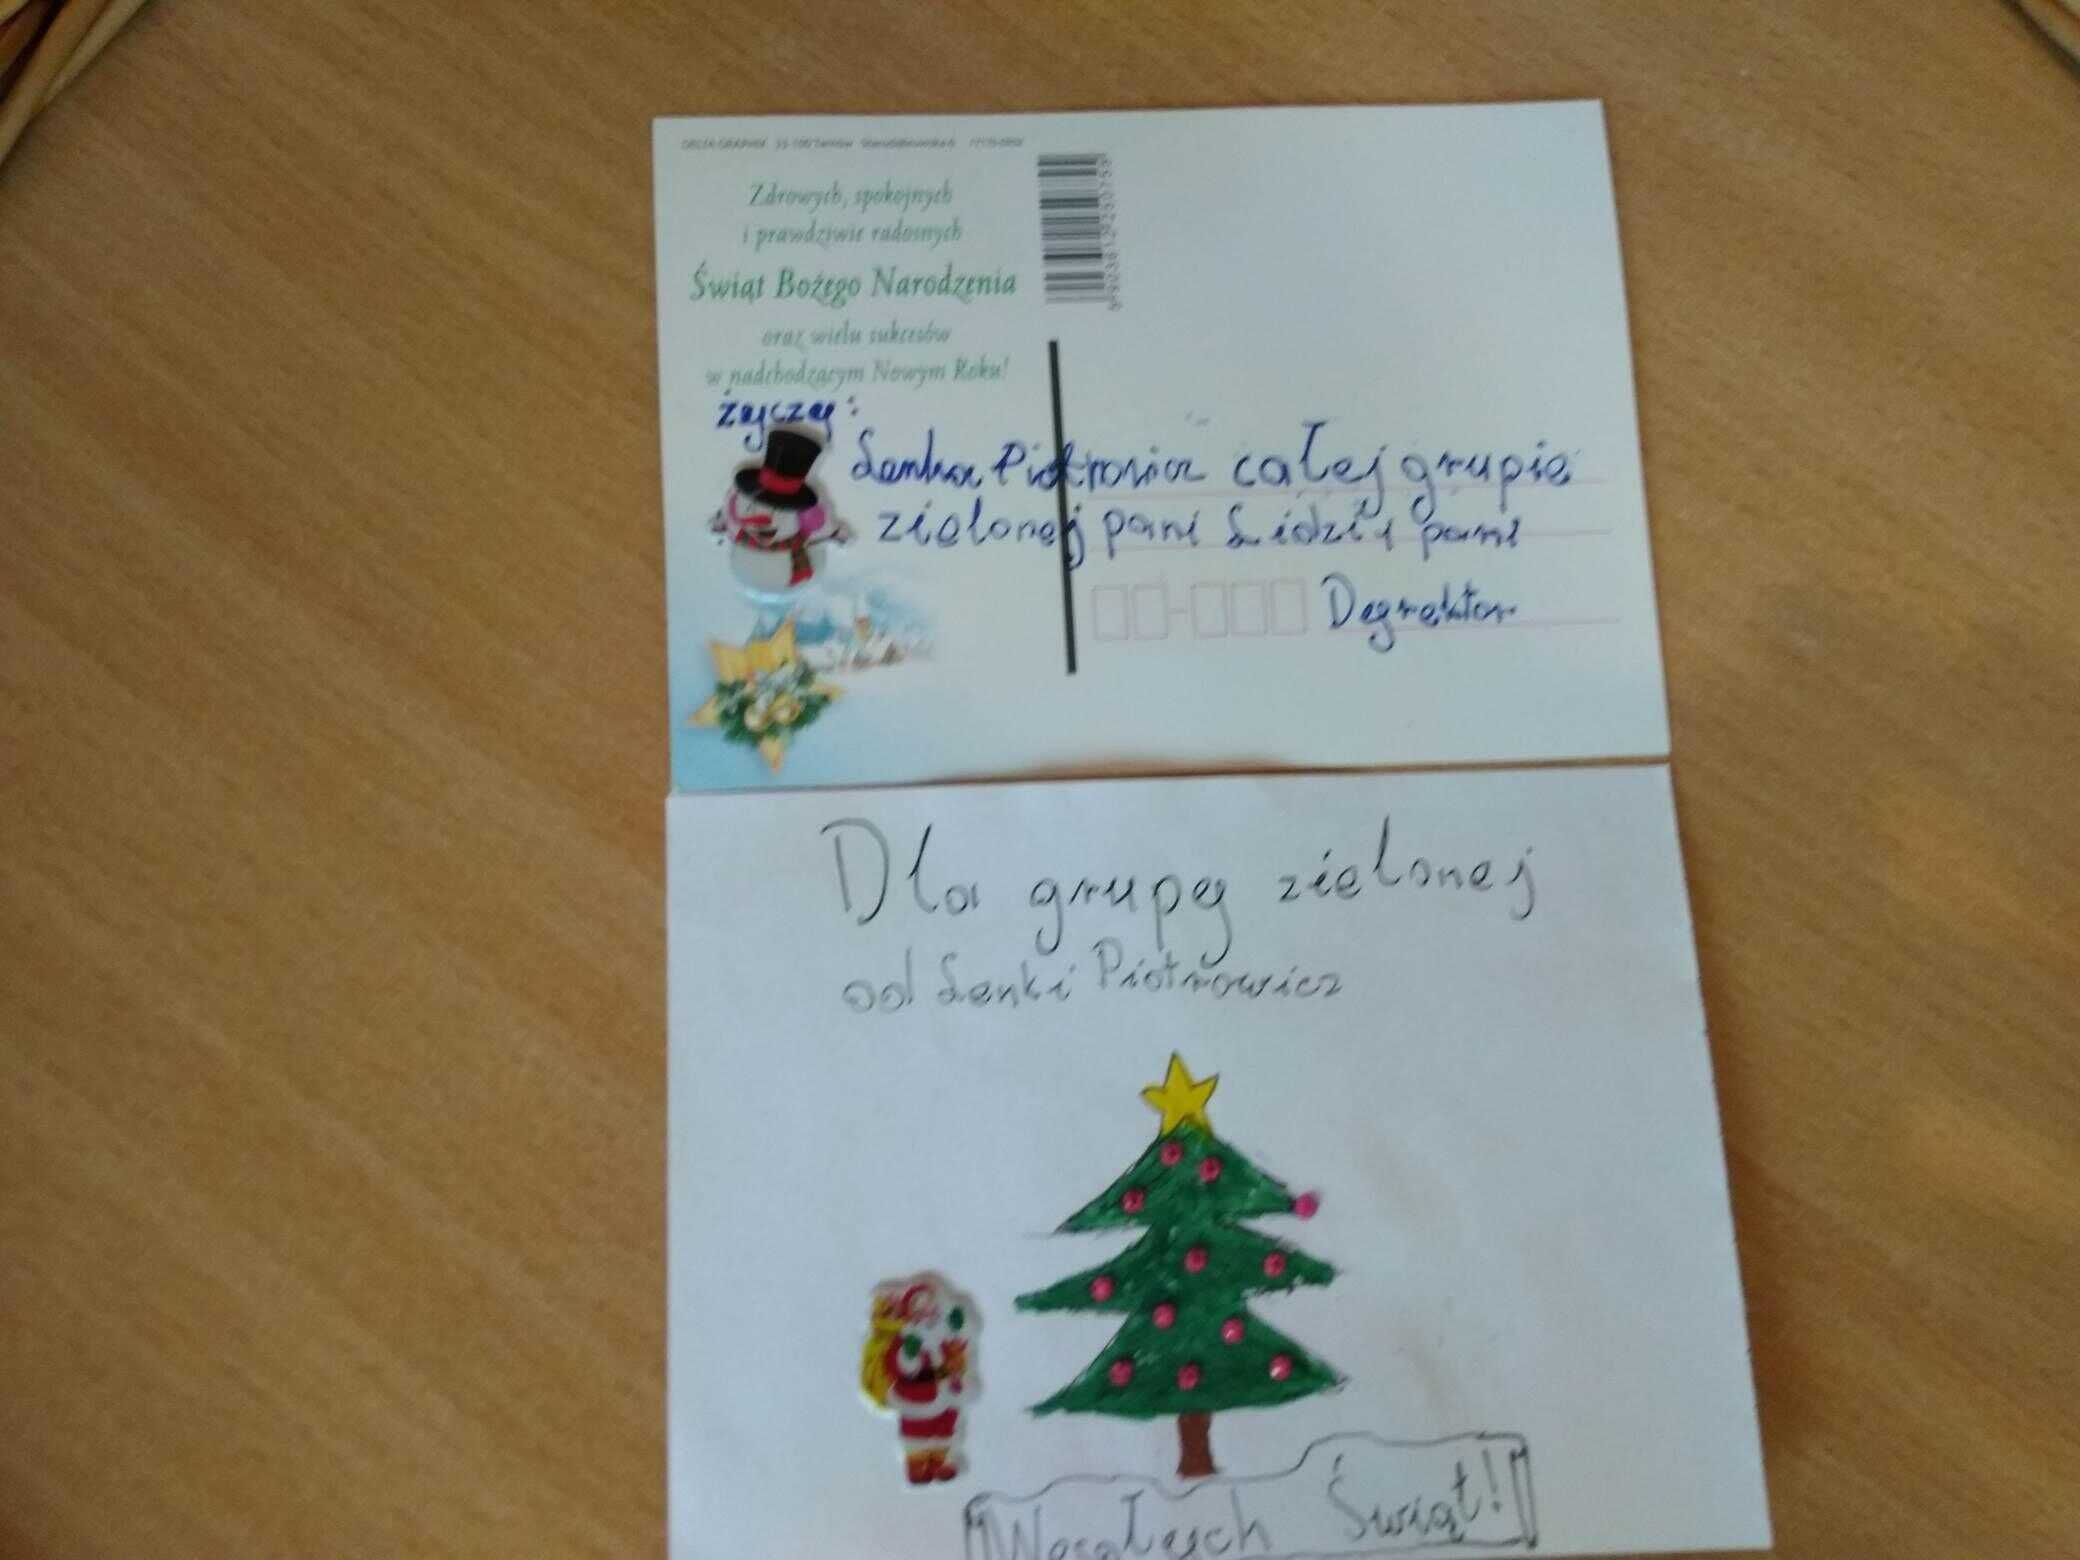 Zdrowych, spokojnych
i prawdziwie radosnych
Świąt Bożego Narodzenia
oraz wielu sukcesów
w nadchodzącym Nowym Roku!
życzy:
Lenka Piotrowicz całej grupie
zielonej pani Lidzi i pani
Dyrektor
Dla grupy zielonej
od Lenki Piotrowicz
Wesołych Świąt!